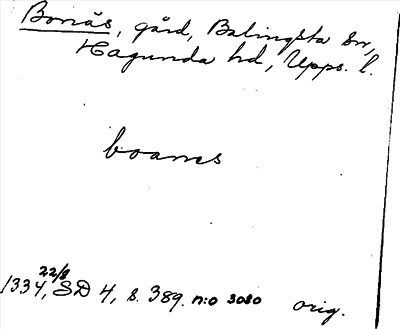 Bonäs, gård, Balingsta sn,
Hagunda hd, Upps. l.
boanes
1334, 22/8 SD 4, s. 389. n:o 3080 orig.